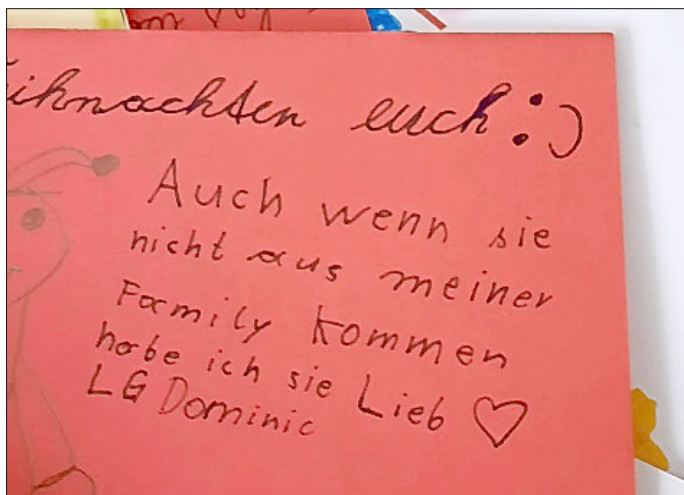 eihnachten euch :)
Auch wenn sie
nicht aus meiner
Family kommen
habe ich sie Lieb ♡
LG Dominic